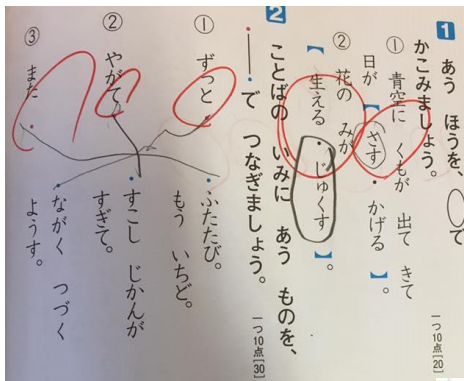 1 あう ほうを、○で
かこみましょう。
一つ10点[20]
① 青空に くもが 出て きて
日が【 さす ・ かげる 】。
② 花の みが
【 生える ・ じゅくす 】。
2 ことばの いみに あう ものを、
・—・で つなぎましょう。
一つ10点[30]
① ずっと・
② やがて・
③ また・
・ふたたび。
もう いちど。
・すこし じかんが
すぎて。
・ながく つづく
ようす。